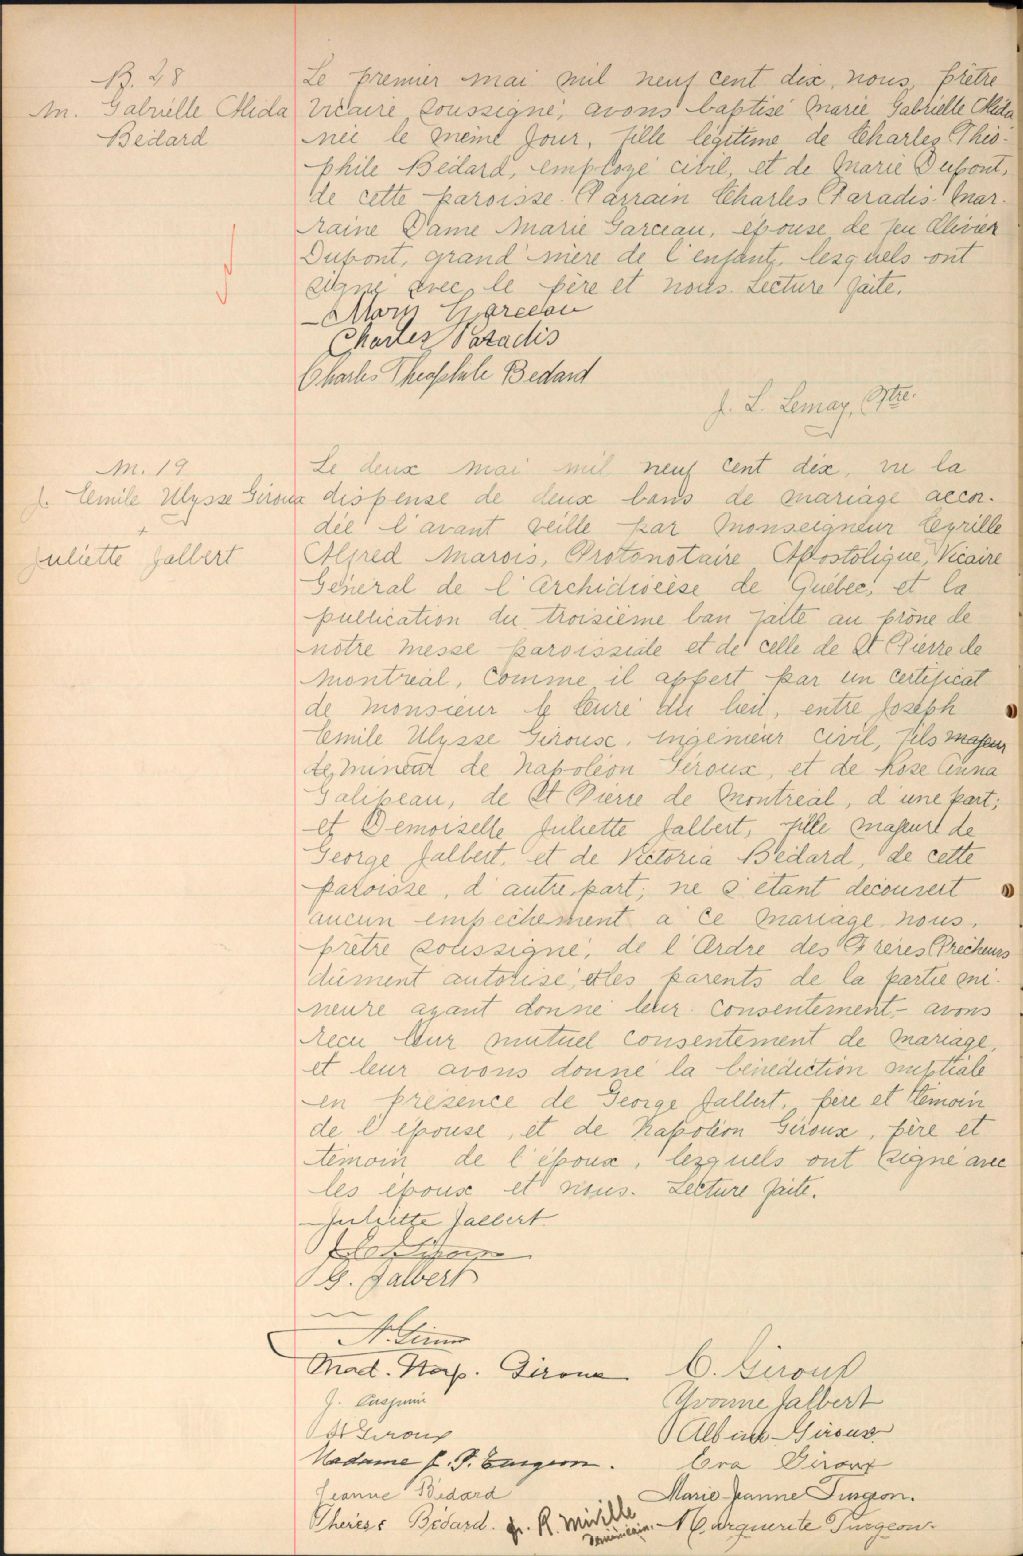 B. 48
M. Gabrielle Alida
Bédard
Le premier mai mil neuf cent dix, nous, prêtre
vicaire soussigné, avons baptisé Marie Gabrielle Alida
née le même jour, fille légitime de Charles Théo-
phile Bédard, employé civil, et de Marie Dupont,
de cette paroisse. Parrain Charles Paradis. Mar-
raine Dame Marie Garceau, épouse de feu Olivier
Dupont, grand'mère de l'enfant, lesquels ont
signé avec le père et nous. Lecture faite.
Mary Garceau
Charles Paradis
Charles Theophile Bedard
J. L. Lemay, Ptre.
M. 19
J. Emile Ulysse Giroux
+
Juliette Jalbert
Le deux mai mil neuf cent dix, vu la
dispense de deux bans de mariage accor-
dée l'avant veille par Monseigneur Cyrille
Alfred Marois, Protonotaire Apostolique, Vicaire
Général de l'Archidiocèse de Québec, et la
publication du troisième ban faite au prône de
notre messe paroissiale et de celle de St Pierre de
Montréal, comme il appert par un certificat
de Monsieur le Curé du lieu, entre Joseph
Emile Ulysse Giroux, ingénieur civil, fils majeur
mineur de Napoléon Giroux, et de Rose Anna
Galipeau, de St Pierre de Montréal, d'une part;
et Demoiselle Juliette Jalbert, fille majeure de
George Jalbert, et de Victoria Bédard, de cette
paroisse, d'autre part; ne s'étant découvert
aucun empêchement à ce mariage, nous,
prêtre soussigné, de l'Ordre des Frères Prêcheurs
dûment autorisé, et les parents de la partie mi-
neure ayant donné leur consentement,- avons
reçu leur mutuel consentement de mariage,
et leur avons donné la bénédiction nuptiale
en présence de George Jalbert, père et témoin
de l'épouse, et de Napoléon Giroux, père et
témoin de l'époux, lesquels ont signé avec
les époux et nous. Lecture faite.
Juliette Jalbert
J. E. Giroux
G. Jalbert
N. Giroux
Mad. Nap. Giroux
C. Giroux
J.
Yvonne Jalbert
H Giroux
Albina Giroux
Madame J. P. Turgeon.
Eva Giroux
Jeanne Bédard
Marie-Jeanne Turgeon.
Thérèse Bédard.
fr. R. Miville
Dominicain.
Marguerite Turgeon.